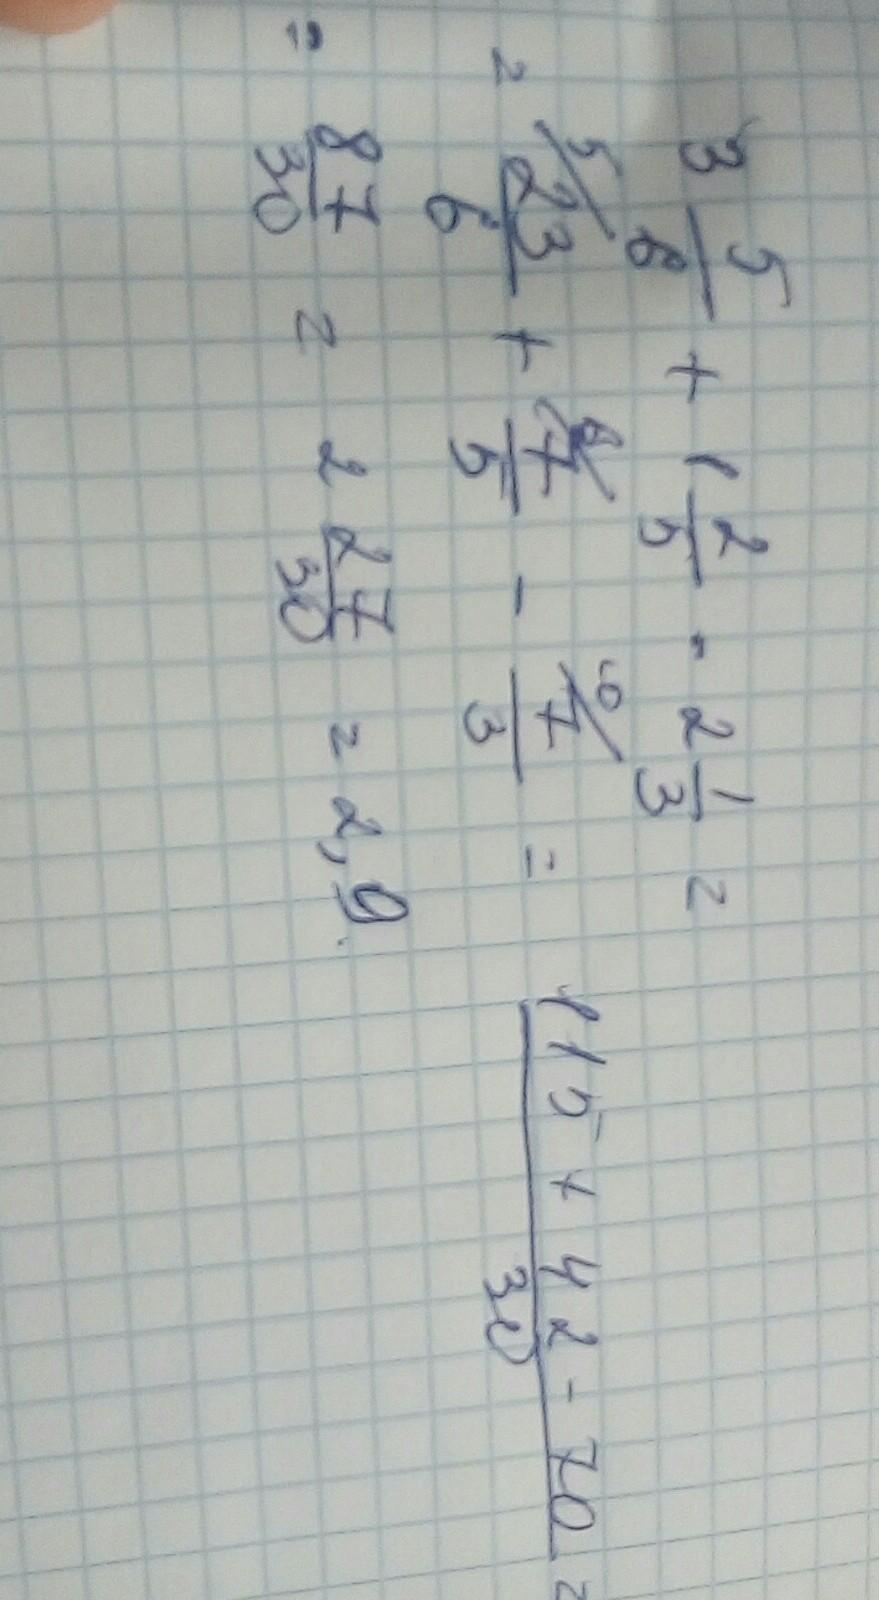 3 5/6 + 1 2/5 - 2 1/3 =
= 5/ 23/6 + 6/ 7/5 - 10/ 7/3 = (115 + 42 - 70)/30 =
= 87/30 = 2 27/30 = 2,9.